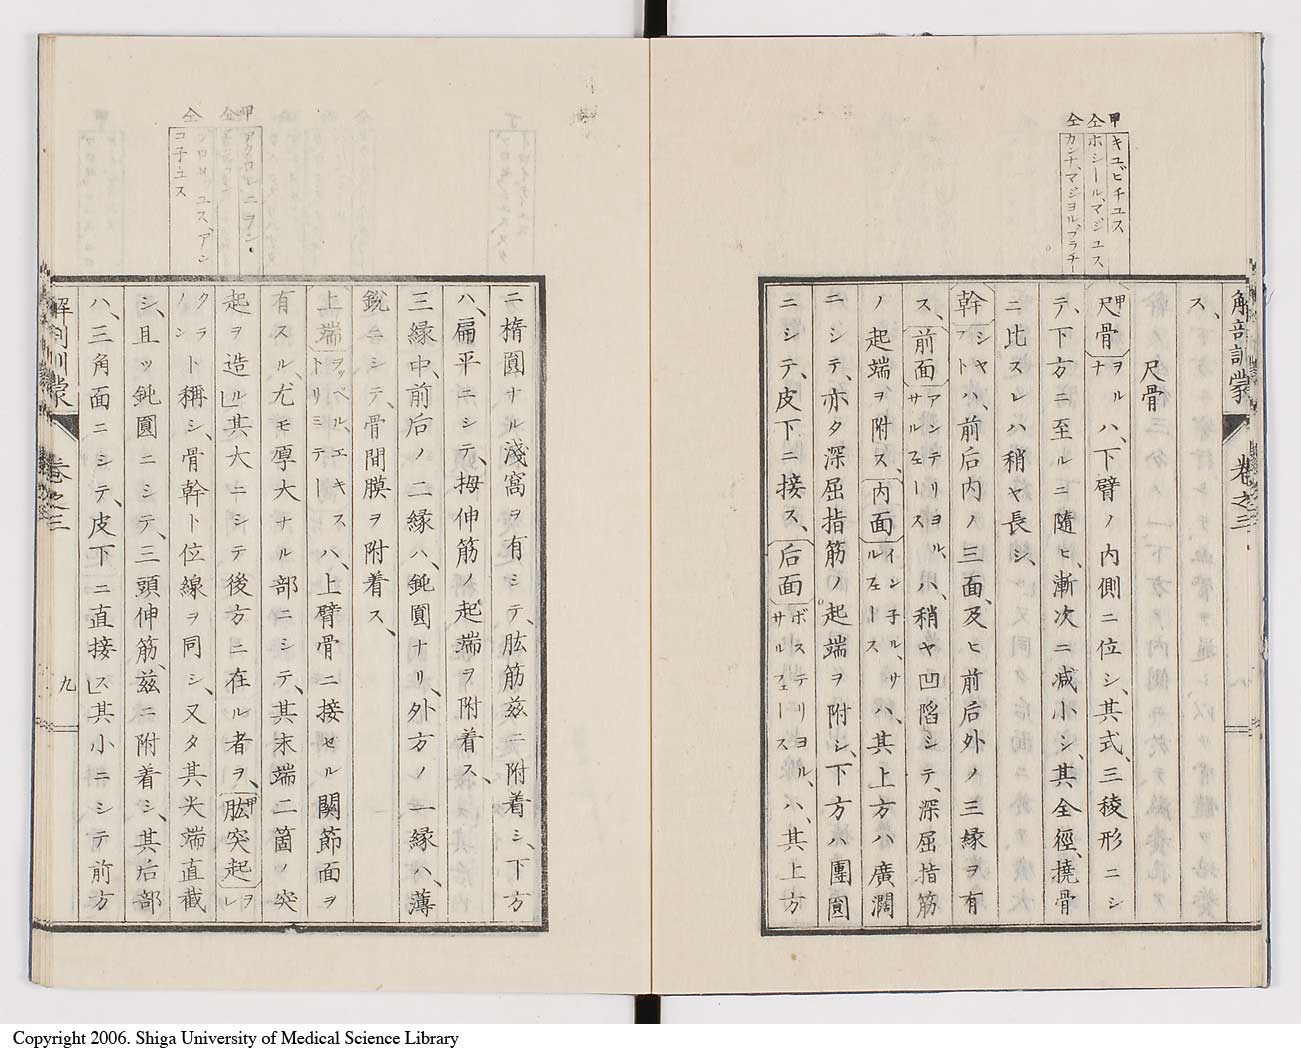 甲 キユビチユス
仝 ホシール、マジユス
仝 カンチ、マジヨル、フラチー
解剖訓蒙 卷之三
ス、
尺骨
尺骨 甲 ヲルナ ハ、下臂ノ內側ニ位シ、其式、三稜形ニシ
テ、下方ニ至ルニ隨ヒ、漸次ニ減小シ、其全徑、撓骨
ニ比スレハ稍ヤ長シ、
幹 シヤフト ハ、前后內ノ三面、及ヒ前后外ノ三緣ヲ有
ス、前面 アンテリヨル、サルフェース ハ、稍ヤ凹陷シテ、深屈指筋
ノ起端ヲ附ス、內面 イン子ル、サルフェース ハ、其上方ハ廣濶
ニシテ、亦タ深屈指筋ノ起端ヲ附シ、下方ハ團圓
ニシテ、皮下ニ接ス、后面 ボステリヨル、サルフェース ハ、其上方
仝 コ子ユス
ニ楕圓ナル淺窩ヲ有シテ、肱筋茲ニ附着シ、下方
ハ、扁平ニシテ、拇伸筋ノ起端ヲ附着ス、
三緣中、前后ノ二緣ハ、鈍圓ナリ、外方ノ一緣ハ、薄
銳ニシテ、骨間膜ヲ附着ス、
上端 ヲッベル、エキストリミテー ハ、上臂骨ニ接セル關節面ヲ
有スル、尤モ厚大ナル部ニシテ、其末端二箇ノ突
起ヲ造ル」其大ニシテ後方ニ在ル者ヲ、肱突起 甲 ヲレ
クラノン ト稱シ、骨幹ト位線ヲ同シ、又タ其尖端直截
シ、且ッ鈍圓ニシテ、三頭伸筋、茲ニ附着シ、其后部
ハ、三角面ニシテ、皮下ニ直接ス」其小ニシテ前方
解剖訓蒙 卷之三 九
Copyright 2006. Shiga University of Medical Science Library